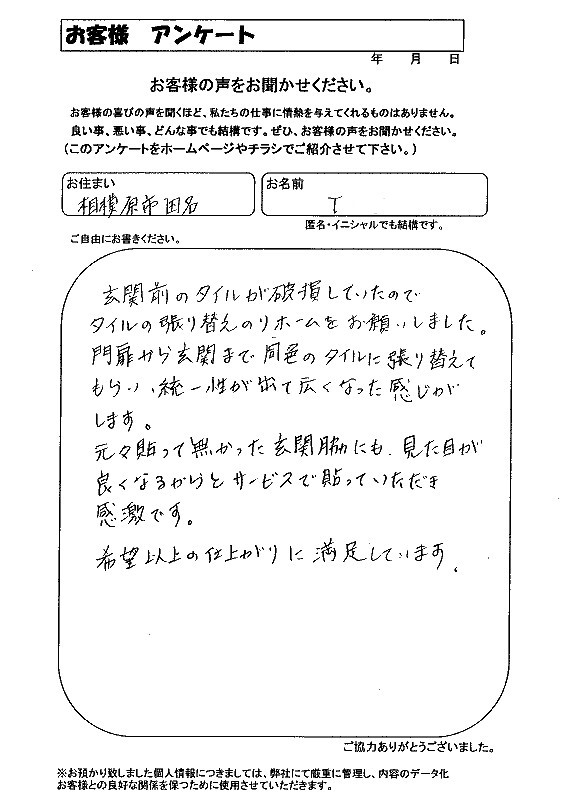 お客様 アンケート
年 月 日
お客様の声をお聞かせください。
お客様の喜びの声を聞くほど、私たちの仕事に情熱を与えてくれるものはありません。
良い事、悪い事、どんな事でも結構です。ぜひ、お客様の声をお聞かせください。
(このアンケートをホームページやチラシでご紹介させて下さい。)
お住まい
相模原市田名
お名前
T
匿名・イニシャルでも結構です。
ご自由にお書きください。
玄関前のタイルが破損していたので
タイルの張り替えのリホームをお願いしました。
門扉から玄関まで同色のタイルに張り替えて
もらい、統一性が出て広くなった感じが
します。
元々貼って無かった玄関脇にも、見た目が
良くなるからとサービスで貼っていただき
感激です。
希望以上の仕上がりに満足しています。
ご協力ありがとうございました。
※お預かり致しました個人情報につきましては、弊社にて厳重に管理し、内容のデータ化
お客様との良好な関係を保つために使用させていただきます。